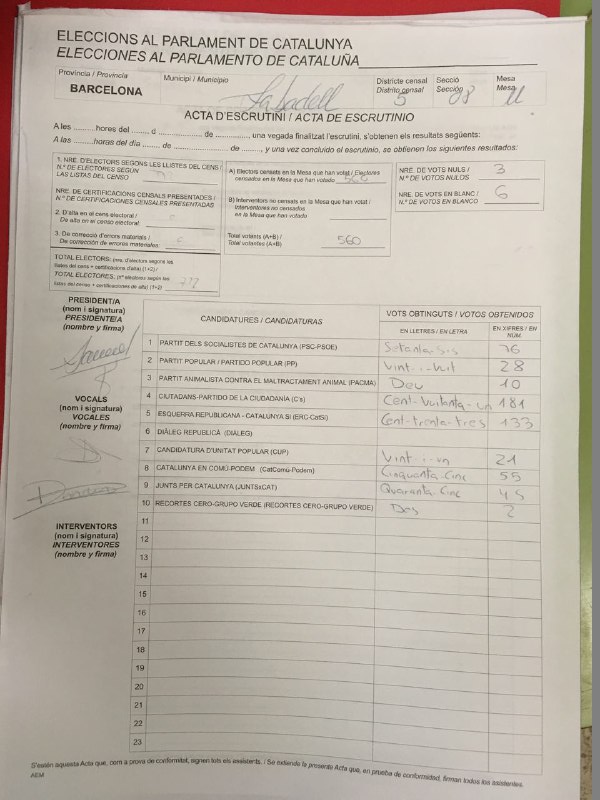 ELECCIONS AL PARLAMENT DE CATALUNYA
ELECCIONES AL PARLAMENTO DE CATALUÑA
Província / Provincia
BARCELONA
Municipi / Municipio
Sabadell
Districte censal
Distrito censal 5
Secció
Sección 08
Mesa
Mesa U
ACTA D'ESCRUTINI / ACTA DE ESCRUTINIO
A les ......... hores del ...... d ..................... de ............, una vegada finalitzat l'escrutini, s'obtenen els resultats següents:
A las .........horas del día ...... de .................. de ......, y una vez concluido el escrutinio, se obtienen los siguientes resultados:
1. NRE. D'ELECTORS SEGONS LES LLISTES DEL CENS /
N.º DE ELECTORES SEGÚN
LAS LISTAS DEL CENSO
NRE. DE CERTIFICACIONS CENSALS PRESENTADES /
N.º DE CERTIFICACIONES CENSALES PRESENTADAS
2. D'alta en el cens electoral /
De alta en el censo electoral:
3. De correcció d'errors materials /
De corrección de errores materiales:
TOTAL ELECTORS: (nre. d'electors segons les
llistes del cens + certificacions d'alta) (1+2) /
TOTAL ELECTORES: (nº electores según las
listas del censo + certificaciones de alta) (1+2) 
A) Electors censats en la Mesa que han votat / Electores
censados en la Mesa que han votado 560
B) Interventors no censats en la Mesa que han votat /
Interventores no censados
en la Mesa que han votado
Total votants (A+B) /
Total votantes (A+B) 560
NRE. DE VOTS NULS /
N.º DE VOTOS NULOS 3
NRE. DE VOTS EN BLANC /
N.º DE VOTOS EN BLANCO 6
PRESIDENT/A
(nom i signatura)
PRESIDENTE/A
(nombre y firma)
VOCALS
(nom i signatura)
VOCALES
(nombre y firma)
INTERVENTORS
(nom i signatura)
INTERVENTORES
(nombre y firma)
CANDIDATURES / CANDIDATURAS
VOTS OBTINGUTS / VOTOS OBTENIDOS
EN LLETRES / EN LETRA
EN XIFRES / EN NÚM.
1 PARTIT DELS SOCIALISTES DE CATALUNYA (PSC-PSOE) Setanta-sis 76
2 PARTIT POPULAR / PARTIDO POPULAR (PP) Vint-i-vuit 28
3 PARTIT ANIMALISTA CONTRA EL MALTRACTAMENT ANIMAL (PACMA) Deu 10
4 CIUTADANS-PARTIDO DE LA CIUDADANÍA (C's) Cent-vuitanta-un 181
5 ESQUERRA REPUBLICANA - CATALUNYA SÍ (ERC-CatSí) Cent-trenta-tres 133
6 DIÀLEG REPUBLICÀ (DIÀLEG)
7 CANDIDATURA D'UNITAT POPULAR (CUP) Vint-i-un 21
8 CATALUNYA EN COMÚ-PODEM (CatComú-Podem) Cinquanta-Cinc 55
9 JUNTS PER CATALUNYA (JUNTSxCAT) Quaranta-Cinc 45
10 RECORTES CERO-GRUPO VERDE (RECORTES CERO-GRUPO VERDE) Dos 2
11
12
13
14
15
16
17
18
19
20
21
22
23
S'estén aquesta Acta que, com a prova de conformitat, signen tots els assistents. / Se extiende la presente Acta que, en prueba de conformidad, firman todos los asistentes.
AEM